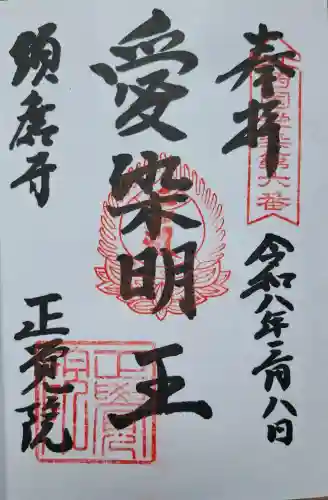 奉拝
令和八年二月八日
愛染明王
須磨寺
正覚院